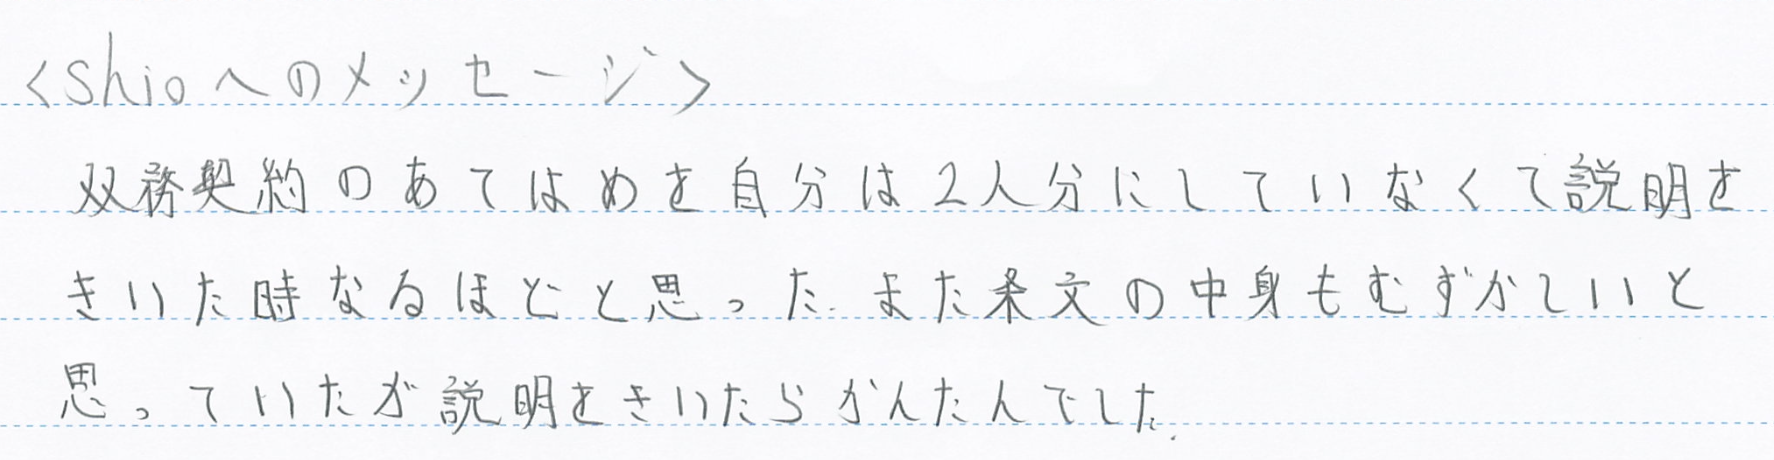 <shioへのメッセージ>
双務契約のあてはめを自分は2人分にしていなくて説明を
きいた時なるほどと思った.また条文の中身もむずかしいと
思っていたが説明をきいたらかんたんでした.